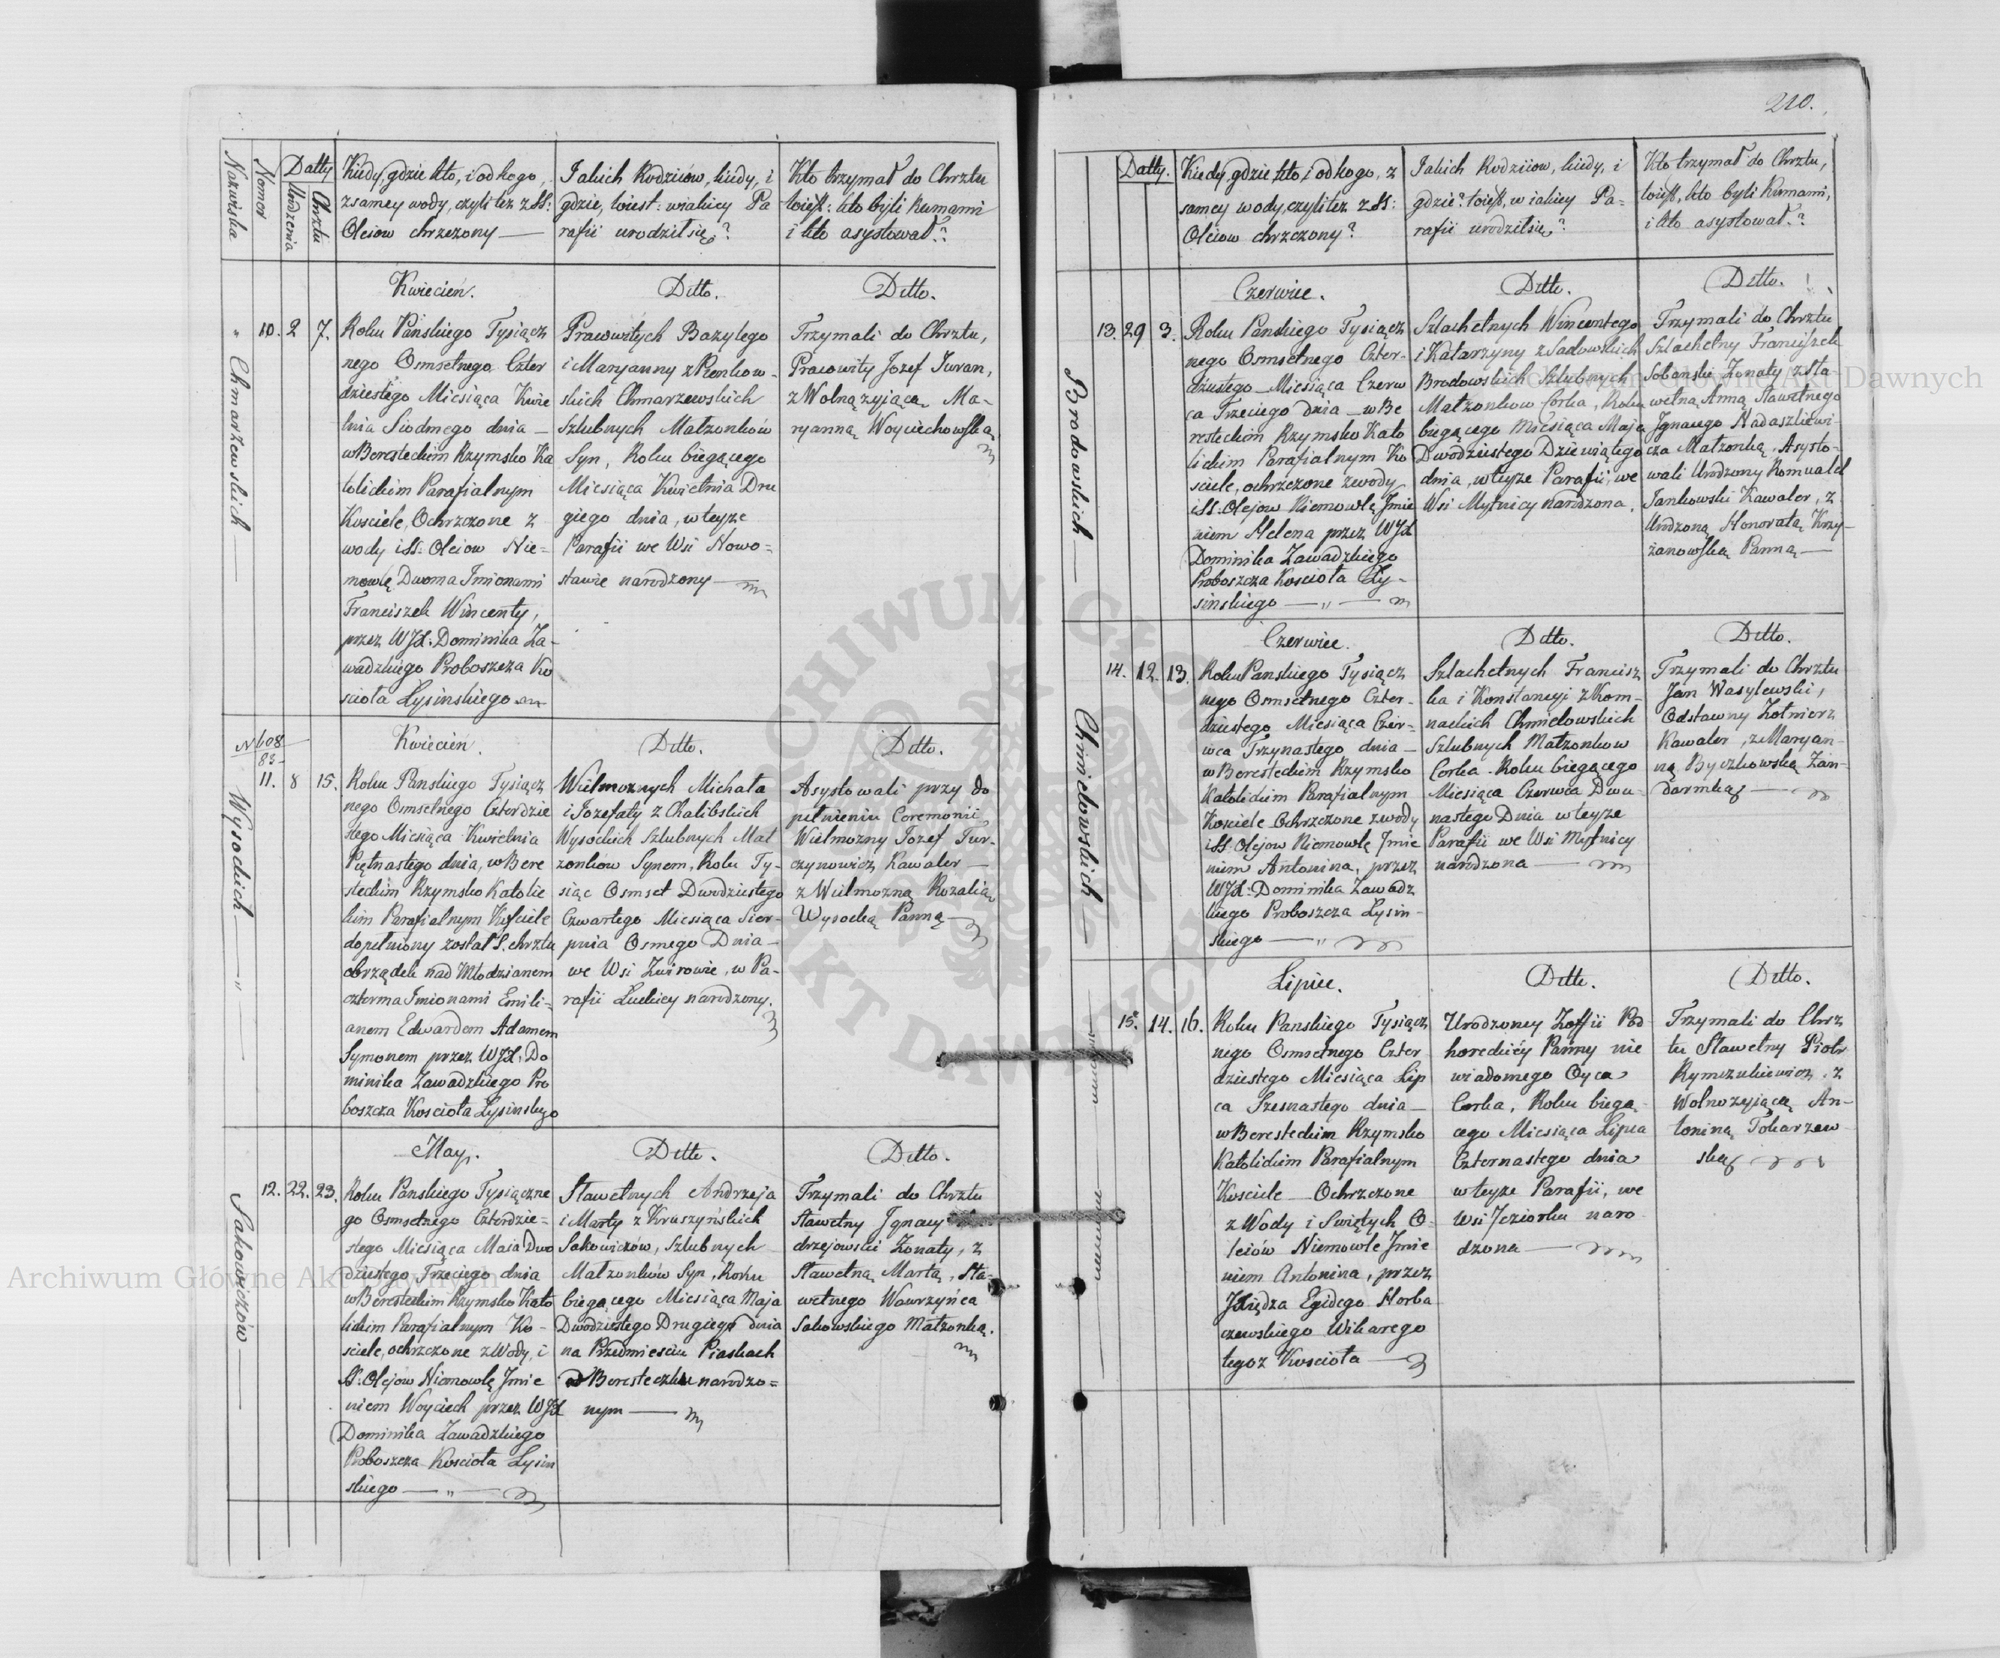 Nazwiska
Nomer
Datty
Urodzenia
Chrztu
Kiedy, gdzie kto, i od kogo,
z samey wody, czyli też z SS:
Oleiow chrzczony —
Jakich Rodziców, kiedy, i
gdzie, toiest: w iakiey Pa
rafii urodził się?
Kto trzymał do Chrztu
toiest: kto byli Kumami
i kto asystował?
Chmarzewskich
10. 2 7.
Kwiecień.
Roku Pańskiego Tysiącz
nego Osmsetnego Czter
dziestego Miesiąca Kwie
tnia Siodmego dnia —
w Beresteckim Rzymsko Ka
tolickim Parafialnym
Kosciele, Ochrzczone z
wody i SS: Oleiow Nie=
mowlę Dwoma Jmionami
Franciszek Wincenty,
przez WJX: Dominika Za-
wadzkiego Proboszcza Ko
scioła Łysinskiego
Ditto.
Pracowitych Bazylego
i Maryanny z Pienkow-
skich Chmarzewskich
Szlubnych Małżonków
Syn, Roku biegącego
Miesiąca Kwietnia Dru
giego dnia, w teyże
Parafii we Wsi Nowo=
stawie narodzony —
Ditto.
Trzymali do Chrztu,
Pracowity Jozef Juran,
z Wolną żyjącą Ma-
ryanną Woyciechowską
N 608
83
Wysockich
11. 8 15.
Kwiecień.
Roku Pańskiego Tysiącz
nego Osmsetnego Czterdzie
stego Miesiąca Kwietnia
Piętnastego dnia, w Bere
steckim Rzymsko Katolic
kim Parafialnym Kosciele
dopełniony został S. chrztu
obrządek nad Młodzianem
czterma Jmionami Emili-
anem Edwardem Adamem
Symonem przez WJX: Do
minika Zawadzkiego Pro
boszcza Koscioła Łysinskiego
Ditto.
Wielmożnych Michała
i Jozefaty z Chalibskich
Wysockich Szlubnych Mał
żonków Synem, Roku Ty-
siąc Osmset Dwudziestego
Czwartego Miesiąca Sier-
pnia Osmego Dnia —
we Wsi Zwirowie, w Pa-
rafii Łuckiey narodzony.
Ditto.
Asystowali przy do
pełnieniu Ceremonii,
Wielmożny Jozef Tur-
czynowicz Kawaler —
z Wielmożną Rozalią
Wysocką Panną —
Sakowiczów
12. 22. 23.
May.
Roku Panskiego Tysiączne
go Osmsetnego Czterdzie=
stego Miesiąca Maia Dwu
dziestego Trzeciego dnia
w Beresteckim Rzymsko Kato
lickim Parafialnym Ko-
sciele, ochrzczone z Wody, i
SS. Olejow Niemowlę Jmie
niem Woyciech przez WJX
Dominika Zawadzkiego
Proboszcza Koscioła Łysin
skiego —
Ditto.
Sławetnych Andrzeja
i Marty z Kruszyńskich
Sakowiczów, Szlubnych
Małżonków Syn, Roku
biegącego Miesiąca Maja
Dwudziestego Drugiego dnia
na Przedmiesciu Piaskach
w Beresteczku narodzo=
nym —
Ditto.
Trzymali do Chrztu
Sławetny Jgnacy
drzejowski Żonaty, z
Sławetną Martą, Sła-
wetnego Wawrzyńca
Sakowskiego Małżonką.
210.
Datty.
Kiedy, gdzie kto, i od kogo, z
samey wody, czyli też z SS:
Oleiow chrzczony?
Jakich Rodziców, kiedy, i
gdzie? toiest, w iakiey Pa-
rafii urodził się?
Kto trzymał do Chrztu,
toiest, kto byli Kumami,
i kto asystował?
Brodowskich
13. 29 3.
Czerwiec.
Roku Panskiego Tysiącz
nego Osmsetnego Czter-
dziestego Miesiąca Czerw
ca Trzeciego dnia — w Be
resteckim Rzymsko Kato
lickim Parafialnym Ko
sciele, ochrzczone z wody
i SS. Olejow Niemowlę Jmie
niem Helena przez WJX
Dominika Zawadzkiego
Proboszcza Koscioła Ły-
sinskiego —
Ditto.
Szlachetnych Wincentego
i Katarzyny z Sadowskich
Brodowskich Szlubnych
Małżonkow Corka, Roku
biegącego Miesiąca Maja
Dwudziestego Dziewiątego
dnia, w teyże Parafii, we
Wsi Mytnicy narodzona.
Ditto.
Trzymali do Chrztu
Szlachetny Franciszek
Sobanski Żonaty z Sła
wetną Anną Sławetnego
Jgnacego Nadaszkiewi-
cza Małżonką, Asysto-
wali Urodzony Romuald
Jankowski Kawaler, z
Urodzoną Honoratą Krzy-
żanowską Panną —
Chmielowskich
14. 12. 13.
Czerwiec.
Roku Panskiego Tysiącz
nego Osmsetnego Czter-
dziestego Miesiąca Czer-
wca Trzynastego dnia —
w Beresteckim Rzymsko
Katolickim Parafialnym
Kosciele Ochrzczone z wody
i SS. Olejow Niemowlę Jmie
niem Antonina, przez
WJX: Dominika Zawadz
kiego Proboszcza Łysin-
skiego —
Ditto.
Szlachetnych Francisz
ka i Konstancyi z Kom-
nackich Chmielowskich
Szlubnych Małżonkow
Corka. Roku biegącego
Miesiąca Czerwca Dwu-
nastego Dnia w teyże
Parafii we Wsi Mytnicy
narodzona —
Ditto.
Trzymali do Chrztu
Jan Wasylewski,
Odstawny Żołnierz
Kawaler, z Maryan-
ną Byczkowską Żan-
darmką —
15. 14. 16.
Lipiec.
Roku Panskiego Tysiącz
nego Osmsetnego Czter
dziestego Miesiąca Lip
ca Szesnastego dnia —
w Beresteckim Rzymsko
Katolickim Parafialnym
Kosciele — Ochrzczone
z Wody i Swiętych O-
leiów Niemowle Jmie
niem Antonina, przez
Xiędza Egidego Horba
czewskiego Wikarego
tegoż Koscioła —
Ditto.
Urodzoney Zoffii Pod
horeckiéy Panny nie
wiadomego Oyca
Corka, Roku biegą-
cego Miesiąca Lipca
Czternastego dnia
w teyże Parafii, we
Wsi Jeziorku naro
dzona —
Ditto.
Trzymali do Chrz
tu Sławetny Piotr
Rymszukiewicz, z
Wolno żyjącą An-
toniną Tokarzew
ską
Archiwum Główne Akt Dawnych
Archiwum Główne Akt Dawnych
ARCHIWUM GŁÓWNE AKT DAWNYCH